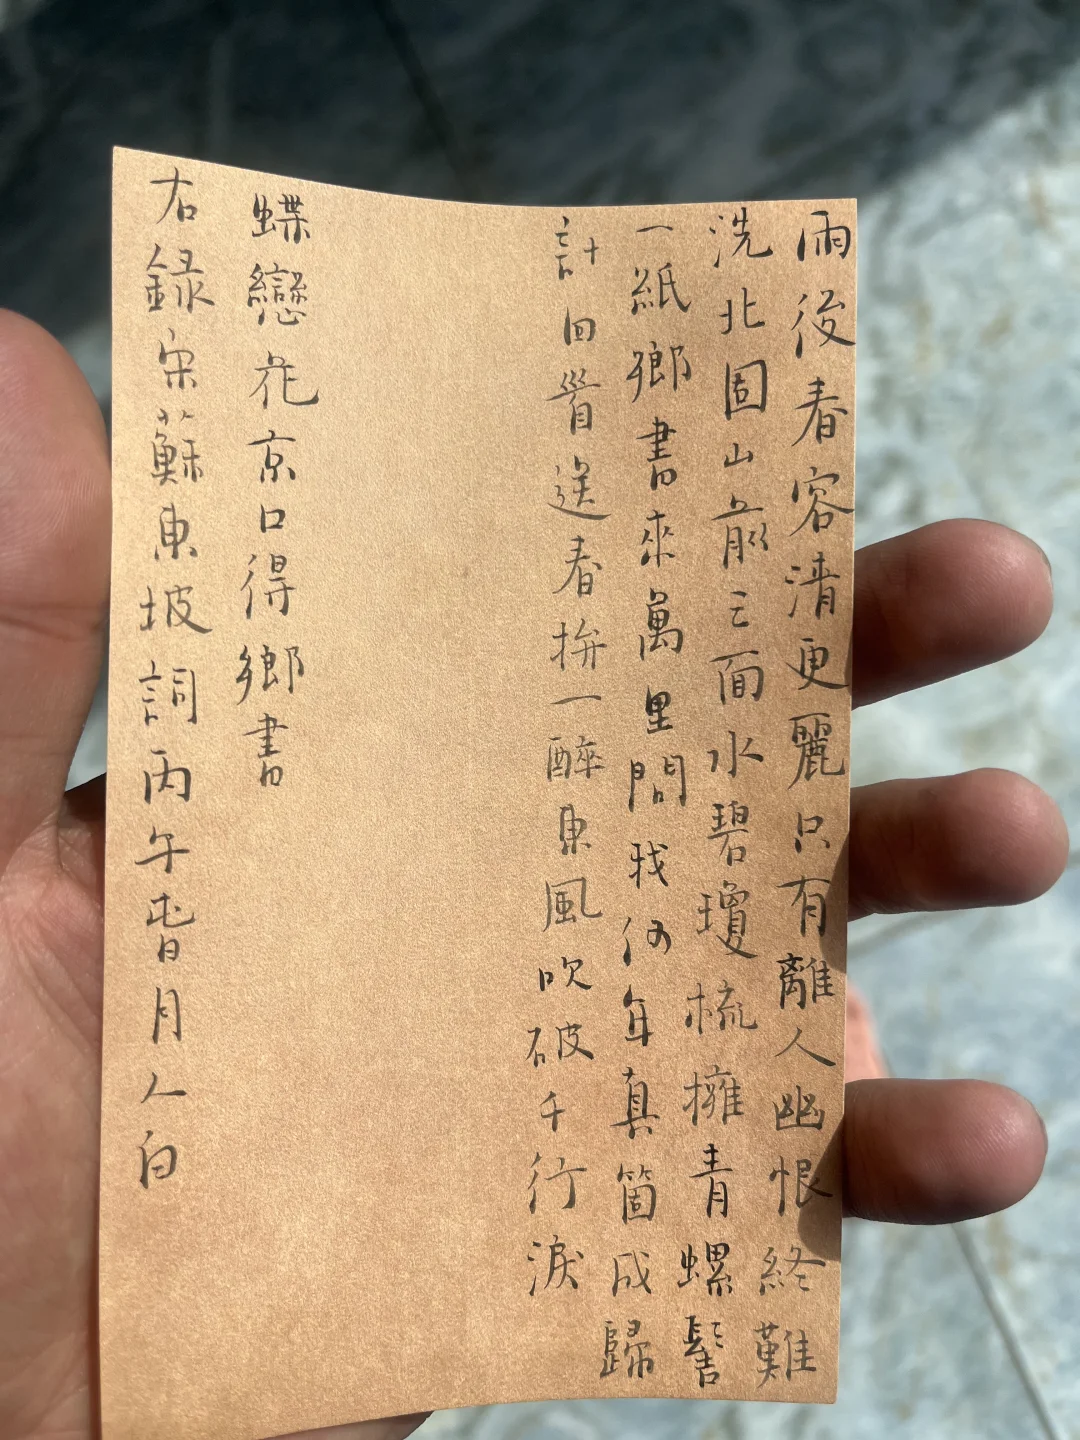 雨後春容清更麗只有離人幽恨終難
洗北固山前三面水碧瓊梳擁青螺髻
一紙鄉書來萬里問我何年真箇成歸
計回首送春拚一醉東風吹破千行淚
蝶戀花京口得鄉書
右錄宋蘇東坡詞丙午旾月人白